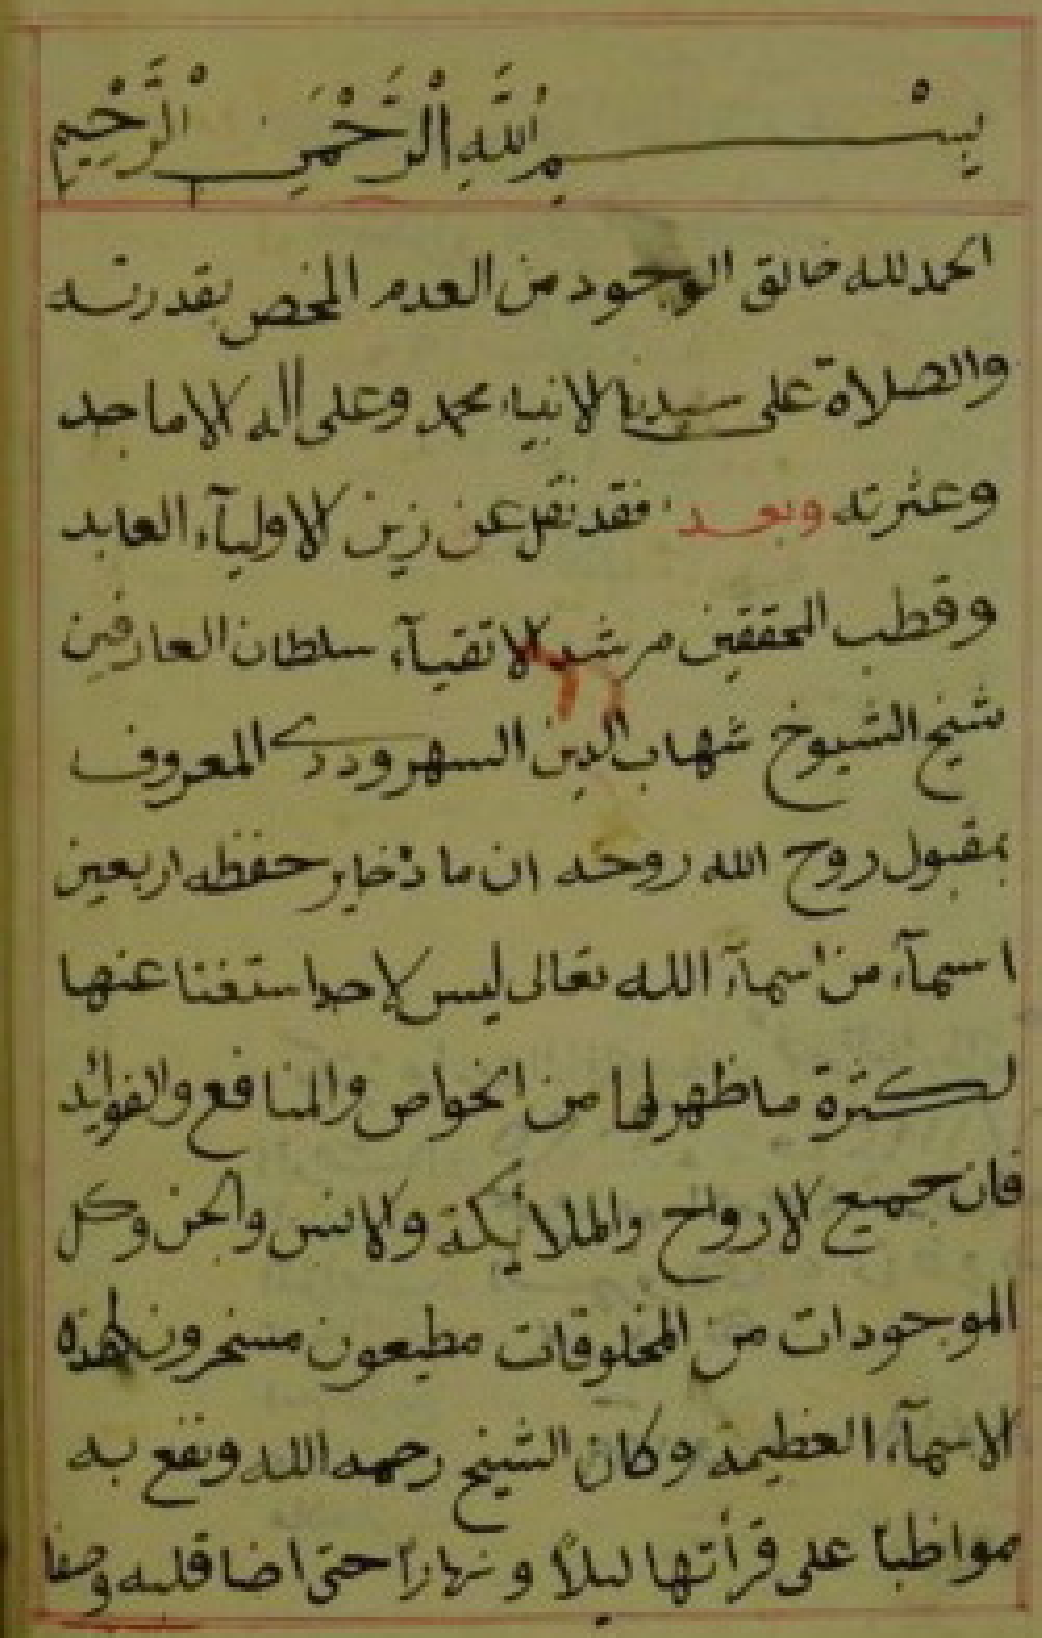 بِسْمِ اللَّهِ الرَّحْمَنِ الرَّحِيمِ
الحمد لله خالق الوجود من العدم المخص بقدرته
والصلاة على سيدنا الانبياء محمد وعلى اله الاماجد
وعثرته وبعد فقد نقل عن زين الاوليآء العابد
وقطب المحققين مرشد الاتقيآء سلطان العارفين
شيخ الشيوخ شهاب الدين السهروردى المعروف
بمقبول روح الله روحه ان ما ذخاير حفظه اربعين
اسمآء من اسمآء الله تعالى ليس لاحد استغنا عنها
لكثرة ما ظهر لها من الخواص والمنافع والفوائد
فان جميع الارواح والملائكة والانس والجن وكل
الموجودات من المخلوقات مطيعون مسخرون لهذه
الاسمآء العظيمة وكان الشيخ رحمه الله ونفع به
مواظبا على قرأتها ليلاً ونهاراً حتى اضا قلبه وصفا